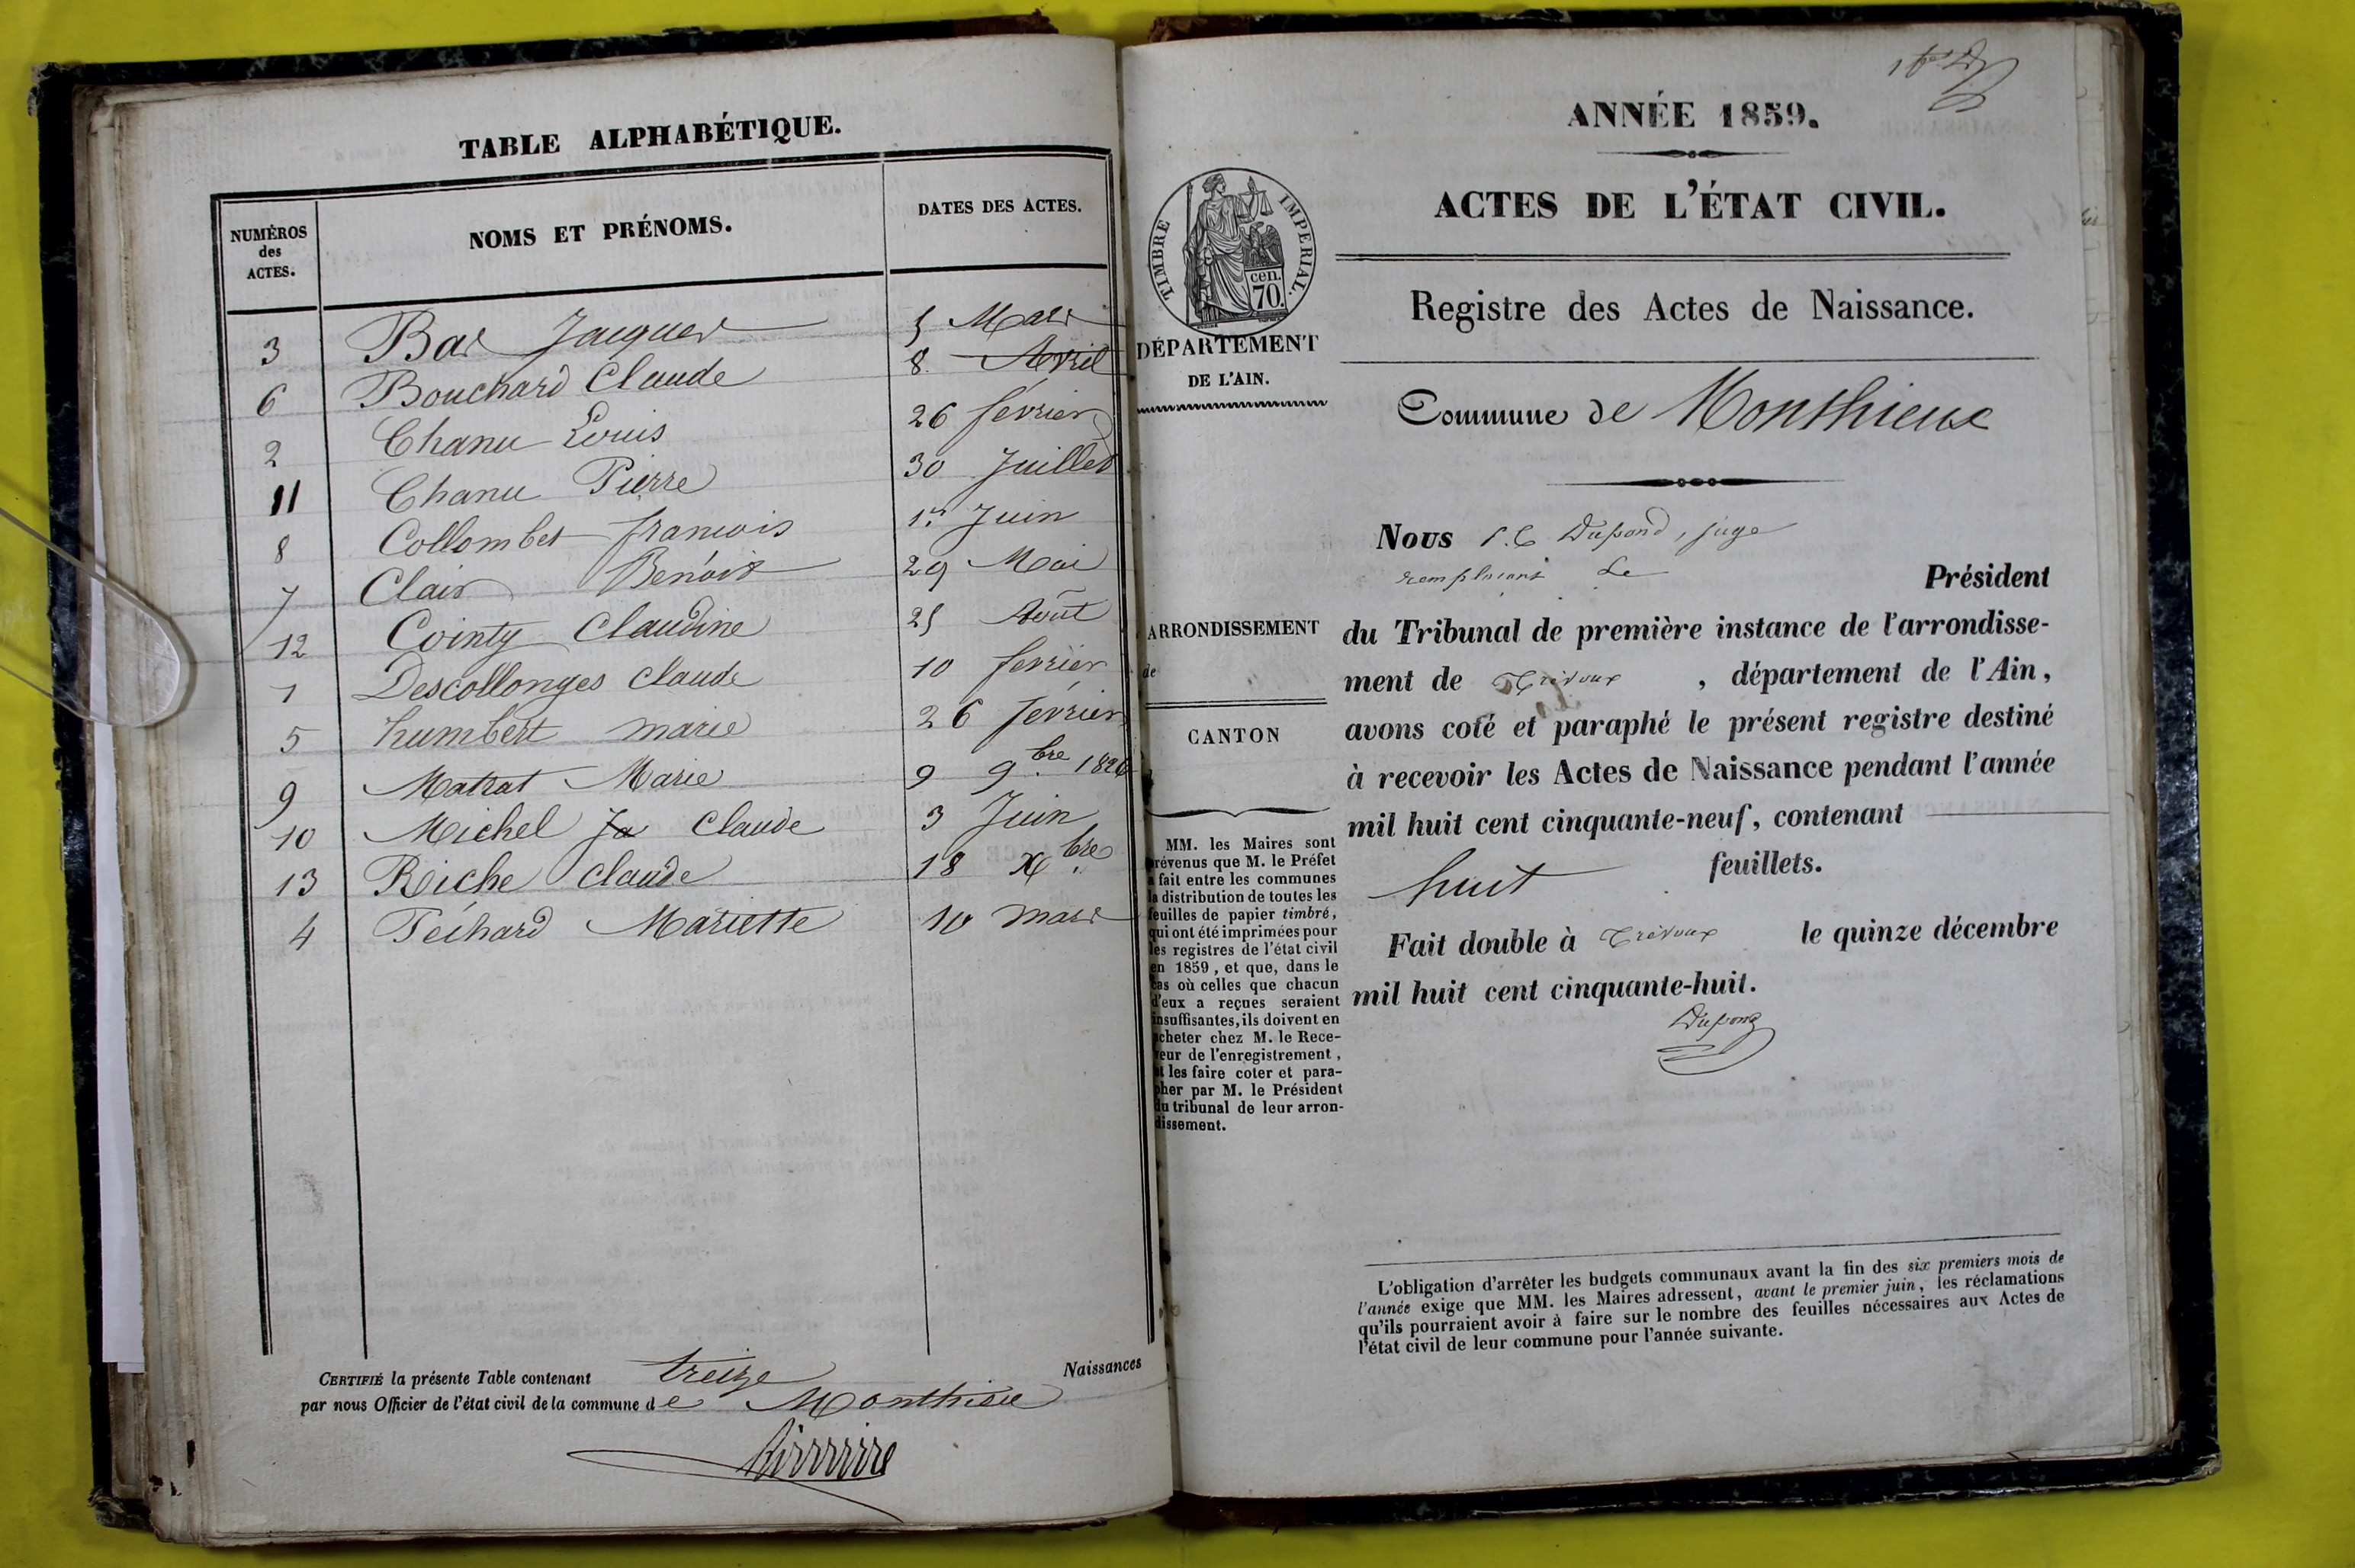 TABLE ALPHABÉTIQUE.
NUMÉROS des ACTES.
NOMS ET PRÉNOMS.
DATES DES ACTES.
3 Bas Jacques 5 Mars
6 Bouchard Claude 8 Avril
2 Chanu Louis 26 février
11 Chanu Pierre 30 Juillet
8 Collombet francois 1er Juin
7 Clair Benoit 29 Mai
12 Cointy Claudine 25 Août
1 Descollonges Claude 10 fevrier
5 humbert marie 26 fevrier
9 Matrat Marie 9 9.bre
10 Michel Claude 3 Juin
13 Reiche Claude 18 Xbre
4 Téchard Mariette 10 mars
CERTIFIÉ la présente Table contenant treize Naissances
par nous Officier de l'état civil de la commune de Monthieu
ANNÉE 1859.
ACTES DE L'ÉTAT CIVIL.
Registre des Actes de Naissance.
TIMBRE IMPERIAL.
cen.
70.
DÉPARTEMENT
DE L'AIN.
Commune de Monthieux
Nous Dupond, juge
remplaçant Le Président
ARRONDISSEMENT
de
CANTON
du Tribunal de première instance de l'arrondisse-
ment de Trévoux, département de l'Ain,
avons coté et paraphé le présent registre destiné
à recevoir les Actes de Naissance pendant l'année
mil huit cent cinquante-neuf, contenant
huit feuillets.
Fait double à Trévoux le quinze décembre
mil huit cent cinquante-huit.
Dupond
MM. les Maires sont
prévenus que M. le Préfet
a fait entre les communes
la distribution de toutes les
feuilles de papier timbré,
qui ont été imprimées pour
les registres de l'état civil
en 1859, et que, dans le
cas où celles que chacun
d'eux a reçues seraient
insuffisantes, ils doivent en
acheter chez M. le Rece-
veur de l'enregistrement,
et les faire coter et para-
pher par M. le Président
du tribunal de leur arron-
dissement.
L'obligation d'arrêter les budgets communaux avant la fin des six premiers mois de
l'année exige que MM. les Maires adressent, avant le premier juin, les réclamations
qu'ils pourraient avoir à faire sur le nombre des feuilles nécessaires aux Actes de
l'état civil de leur commune pour l'année suivante.